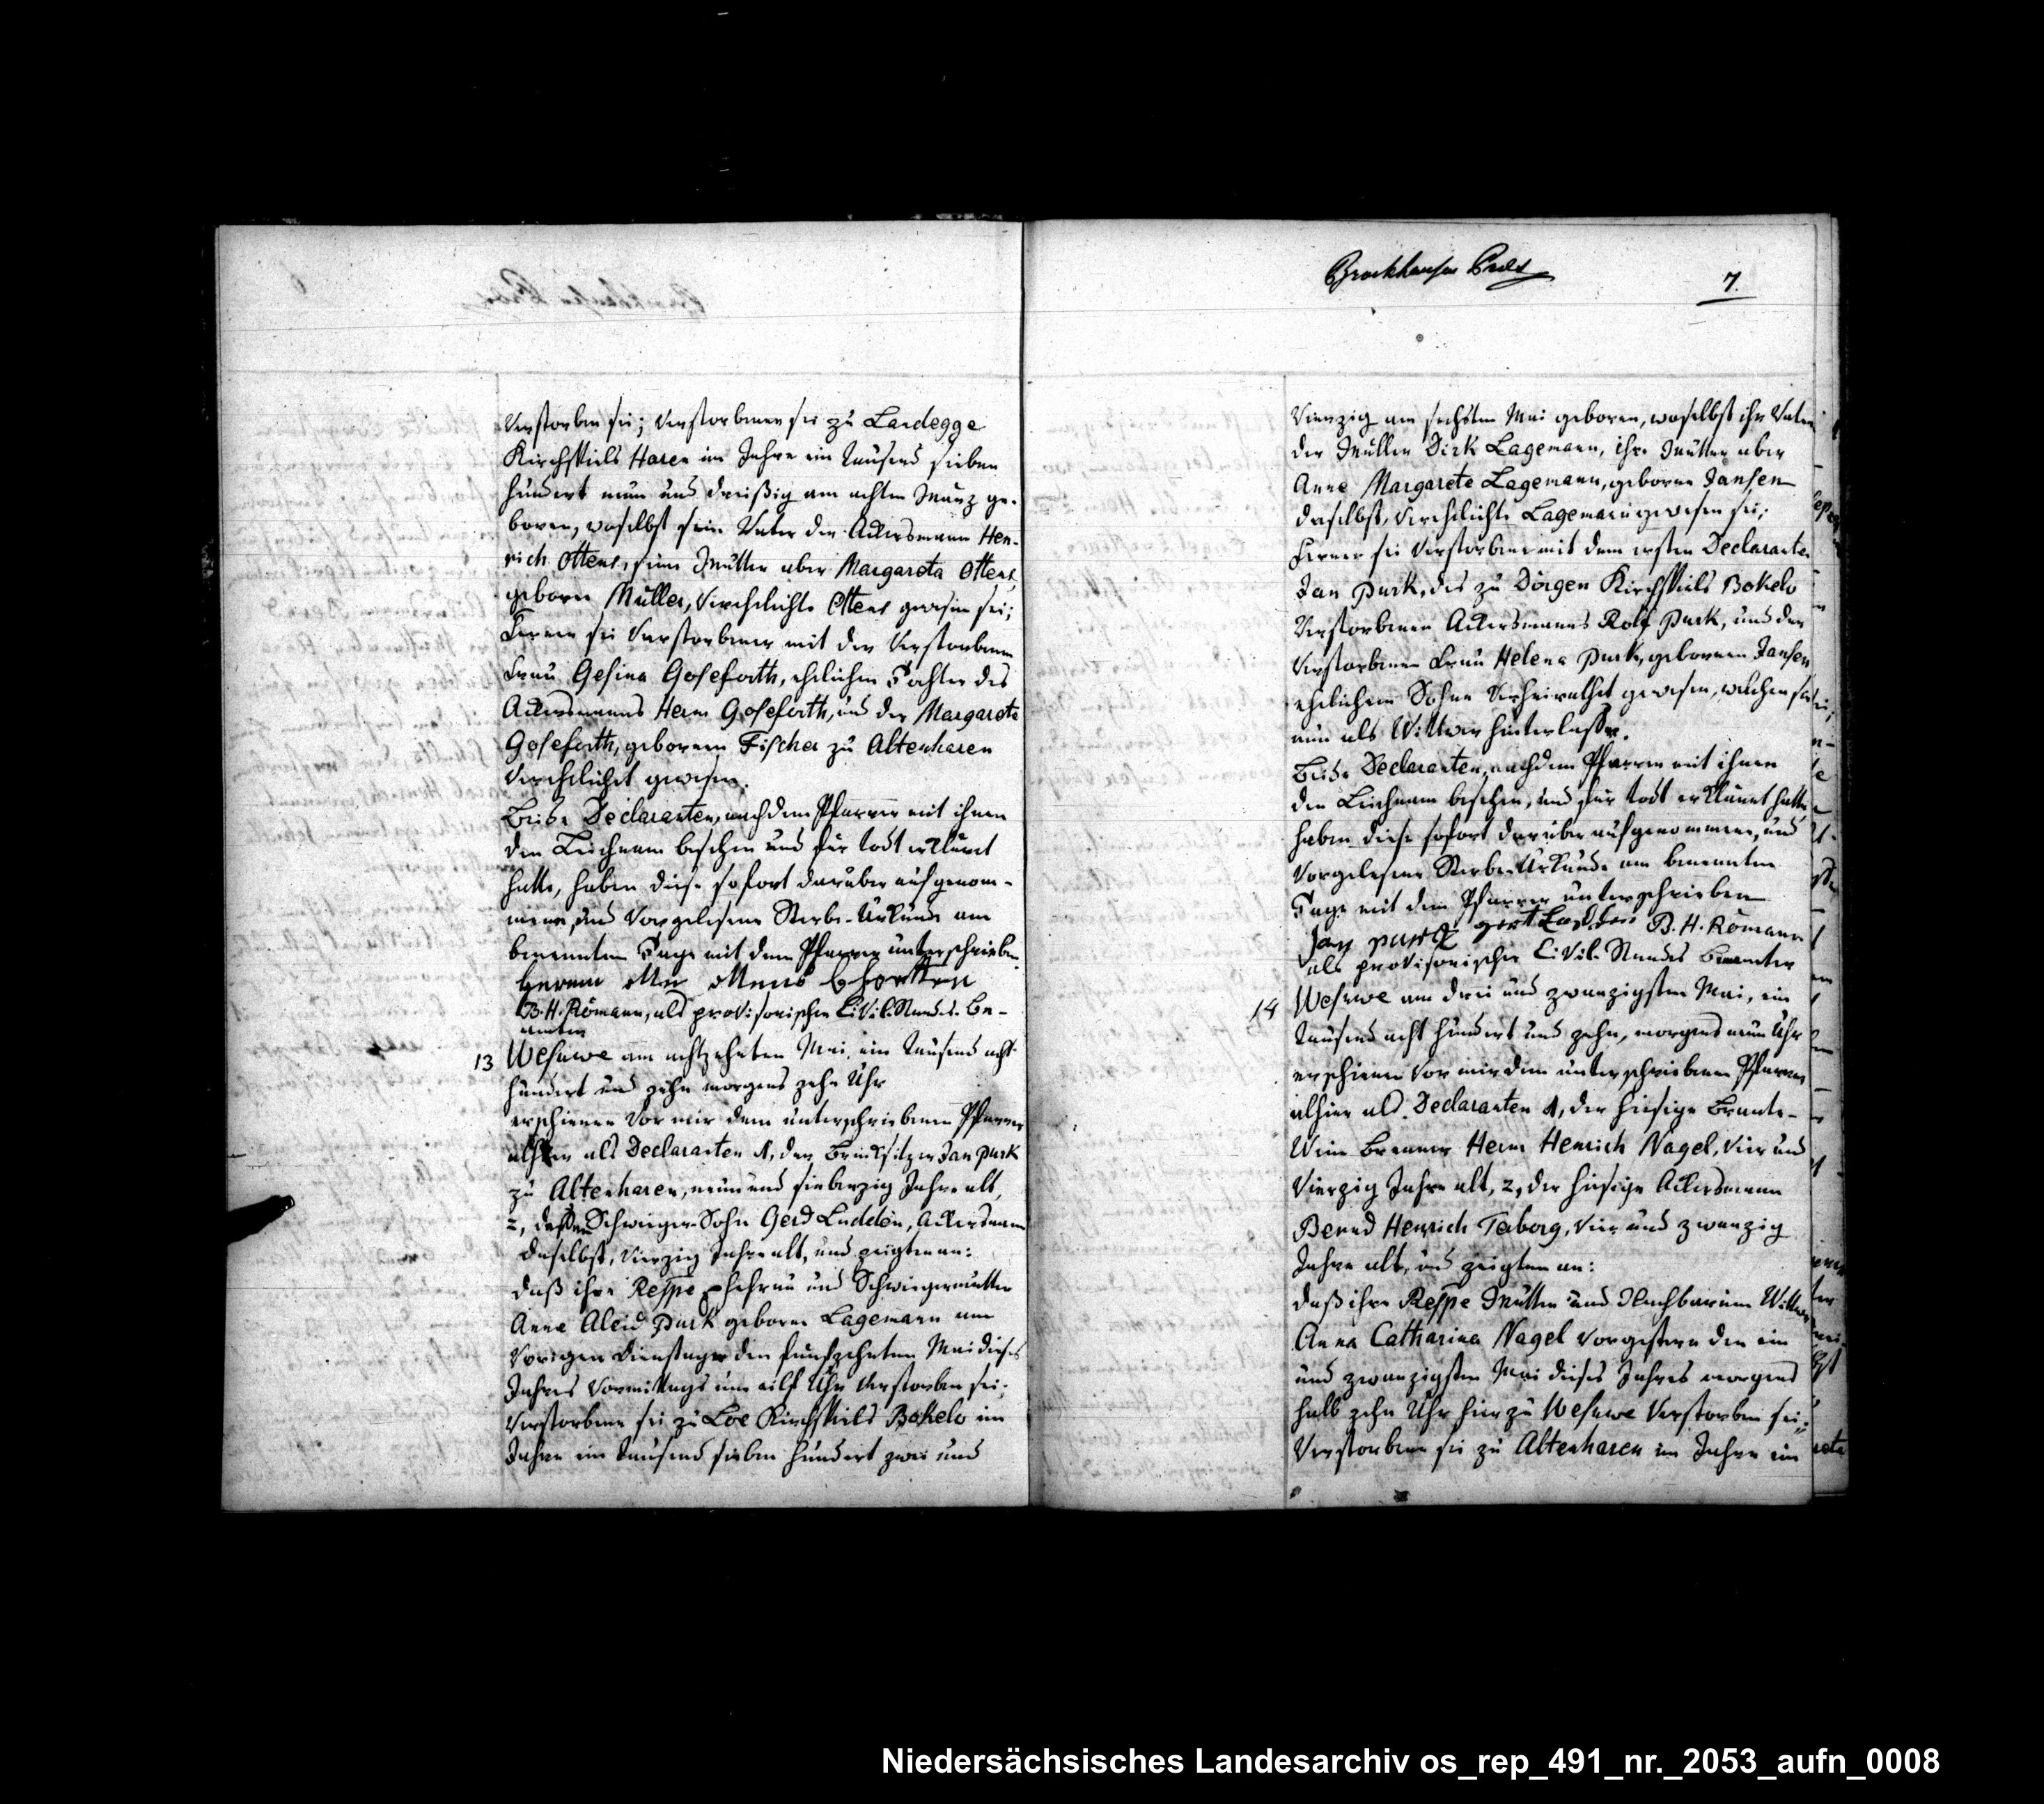 Verstorben sei; Verstorbener sei zu Landegge
Kirchspiels Haren im Jahre ein Tausend sieben
hundert neun und dreißig am achten März ge-
boren, woselbst sein Vater der Ackersmann Hen-
rich Ottens, seine Mutter aber Margareta Ottens
geborne Müller, Verehelichte Ottens gewesen sei;
Ferner sei Verstorbener mit der Verstorbenen
Frau Gesina Goseforth, ehelichen Tochter des
Ackersmanns Herm Goseforth, und der Margareta
Goseforth, gebornen Fischer zu Altenharen
Verehelichet gewesen.
Beide Declaranten, nachdem Pfarrer mit ihnen
den Leichnam besehen und für todt erklärt
hatte, haben diese sofort darüber aufgenom-
mene, und Vorgelesene Sterbe-Urkunde am
benannten Tage mit dem Pfarrer unterschrieben.
herem ottens
B. H. Römann, als provisorischer Civil-Standes-Be-
amter
13 Wesuwe am achtzehnten Mai, ein Tausend acht
hundert und zehn morgens zehn Uhr
erschienen Vor mir dem unterschriebenen Pfarrer
alhier als Declaranten 1, der Brinksitzer Jan Purk
zu Altenharen, neun und siebenzig Jahre alt,
2, dessen Schwieger-Sohn Gerd Ludden, Ackersmann
daselbst, Vierzig Jahre alt, und zeigten an:
daß ihre Respe Ehefrau und Schwiegermutter
Anna Aleid Purk geborne Lagemann am
Vorigen Dienstage den funfzehnten Mai dieses
Jahres Vormittags um eilf Uhr Verstorben sei;
Verstorbene sei zu Loe Kirchspiels Bokelo im
Jahre ein Tausend sieben hundert zwei und
7.
Vierzig am sechsten Mai geboren, woselbst ihr Vater
der Müller Dirk Lagemann, ihre Mutter aber
Anna Margareta Lagemann, geborne Jansen
daselbst, Verehelichte Lagemann gewesen sei;
Ferner sei Verstorbene mit dem ersten Declaranten
Jan Purk, des zu Dörgen Kirchspiels Bokelo
Verstorbenen Ackersmanns Rolf Purk, und der
Verstorbenen Frau Helena Purk, gebornen Jansen
ehelichem Sohne Verheirathet gewesen, welchen sie
nun als Wittwer hinterlasse.
Beide Declaranten, nachdem Pfarrer mit ihnen
den Leichnam besehen, und für todt erklärt hatte,
haben diese sofort darüber aufgenommene, und
Vorgelesene Sterbe-Urkunde am benannten
Tage mit dem Pfarrer unterschrieben
Jan purk gert B. H. Römann
als provisorischer Civil-Standes Beamter
14 Wesuwe am drei und zwanzigsten Mai, ein
Tausend acht hundert und zehn, morgens neun Uhr
erschienen Vor mir dem unterschriebenen Pfarrer
alhier als Declaranten 1, der hiesige Brante-
Wein Brenner Herm Henrich Nagel, Vier und
Vierzig Jahre alt, 2, der hiesige Ackersmann
Bernd Henrich Teborg, Vier und zwanzig
Jahre alt, und zeigten an:
daß ihre Respe Mutter und Nachbarinn Wittwe
Anna Catharina Nagel Vorgestern den ein
und zwanzigsten Mai dieses Jahres morgens
halb zehn Uhr hier zu Wesuwe Verstorben sei;
Verstorbene sei zu Altenharen im Jahre ein
Niedersächsisches Landesarchiv os_rep_491_nr._2053_aufn_0008